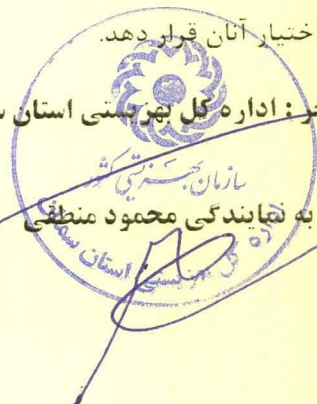 اختیار آنان قرار دهد.
: اداره کل بهزیستی استان
سازمان بهزیستی کشور
به نمایندگی محمود منطقی
اداره کل بهزیستی استان سمنان